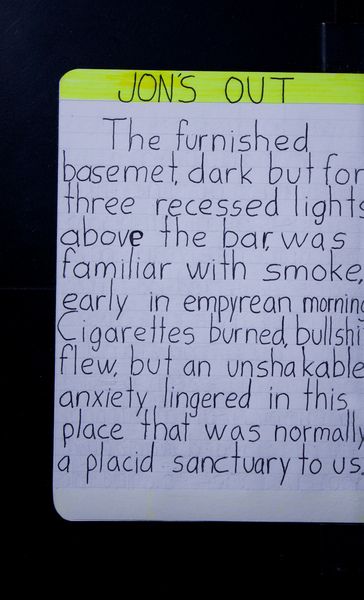 JON'S OUT
The furnished
basemet, dark but for
three recessed lights
above the bar, was
familiar with smoke,
early in empyrean morning
Cigarettes burned, bullshit
flew, but an unshakable
anxiety lingered in this
place that was normally
a placid sanctuary to us.